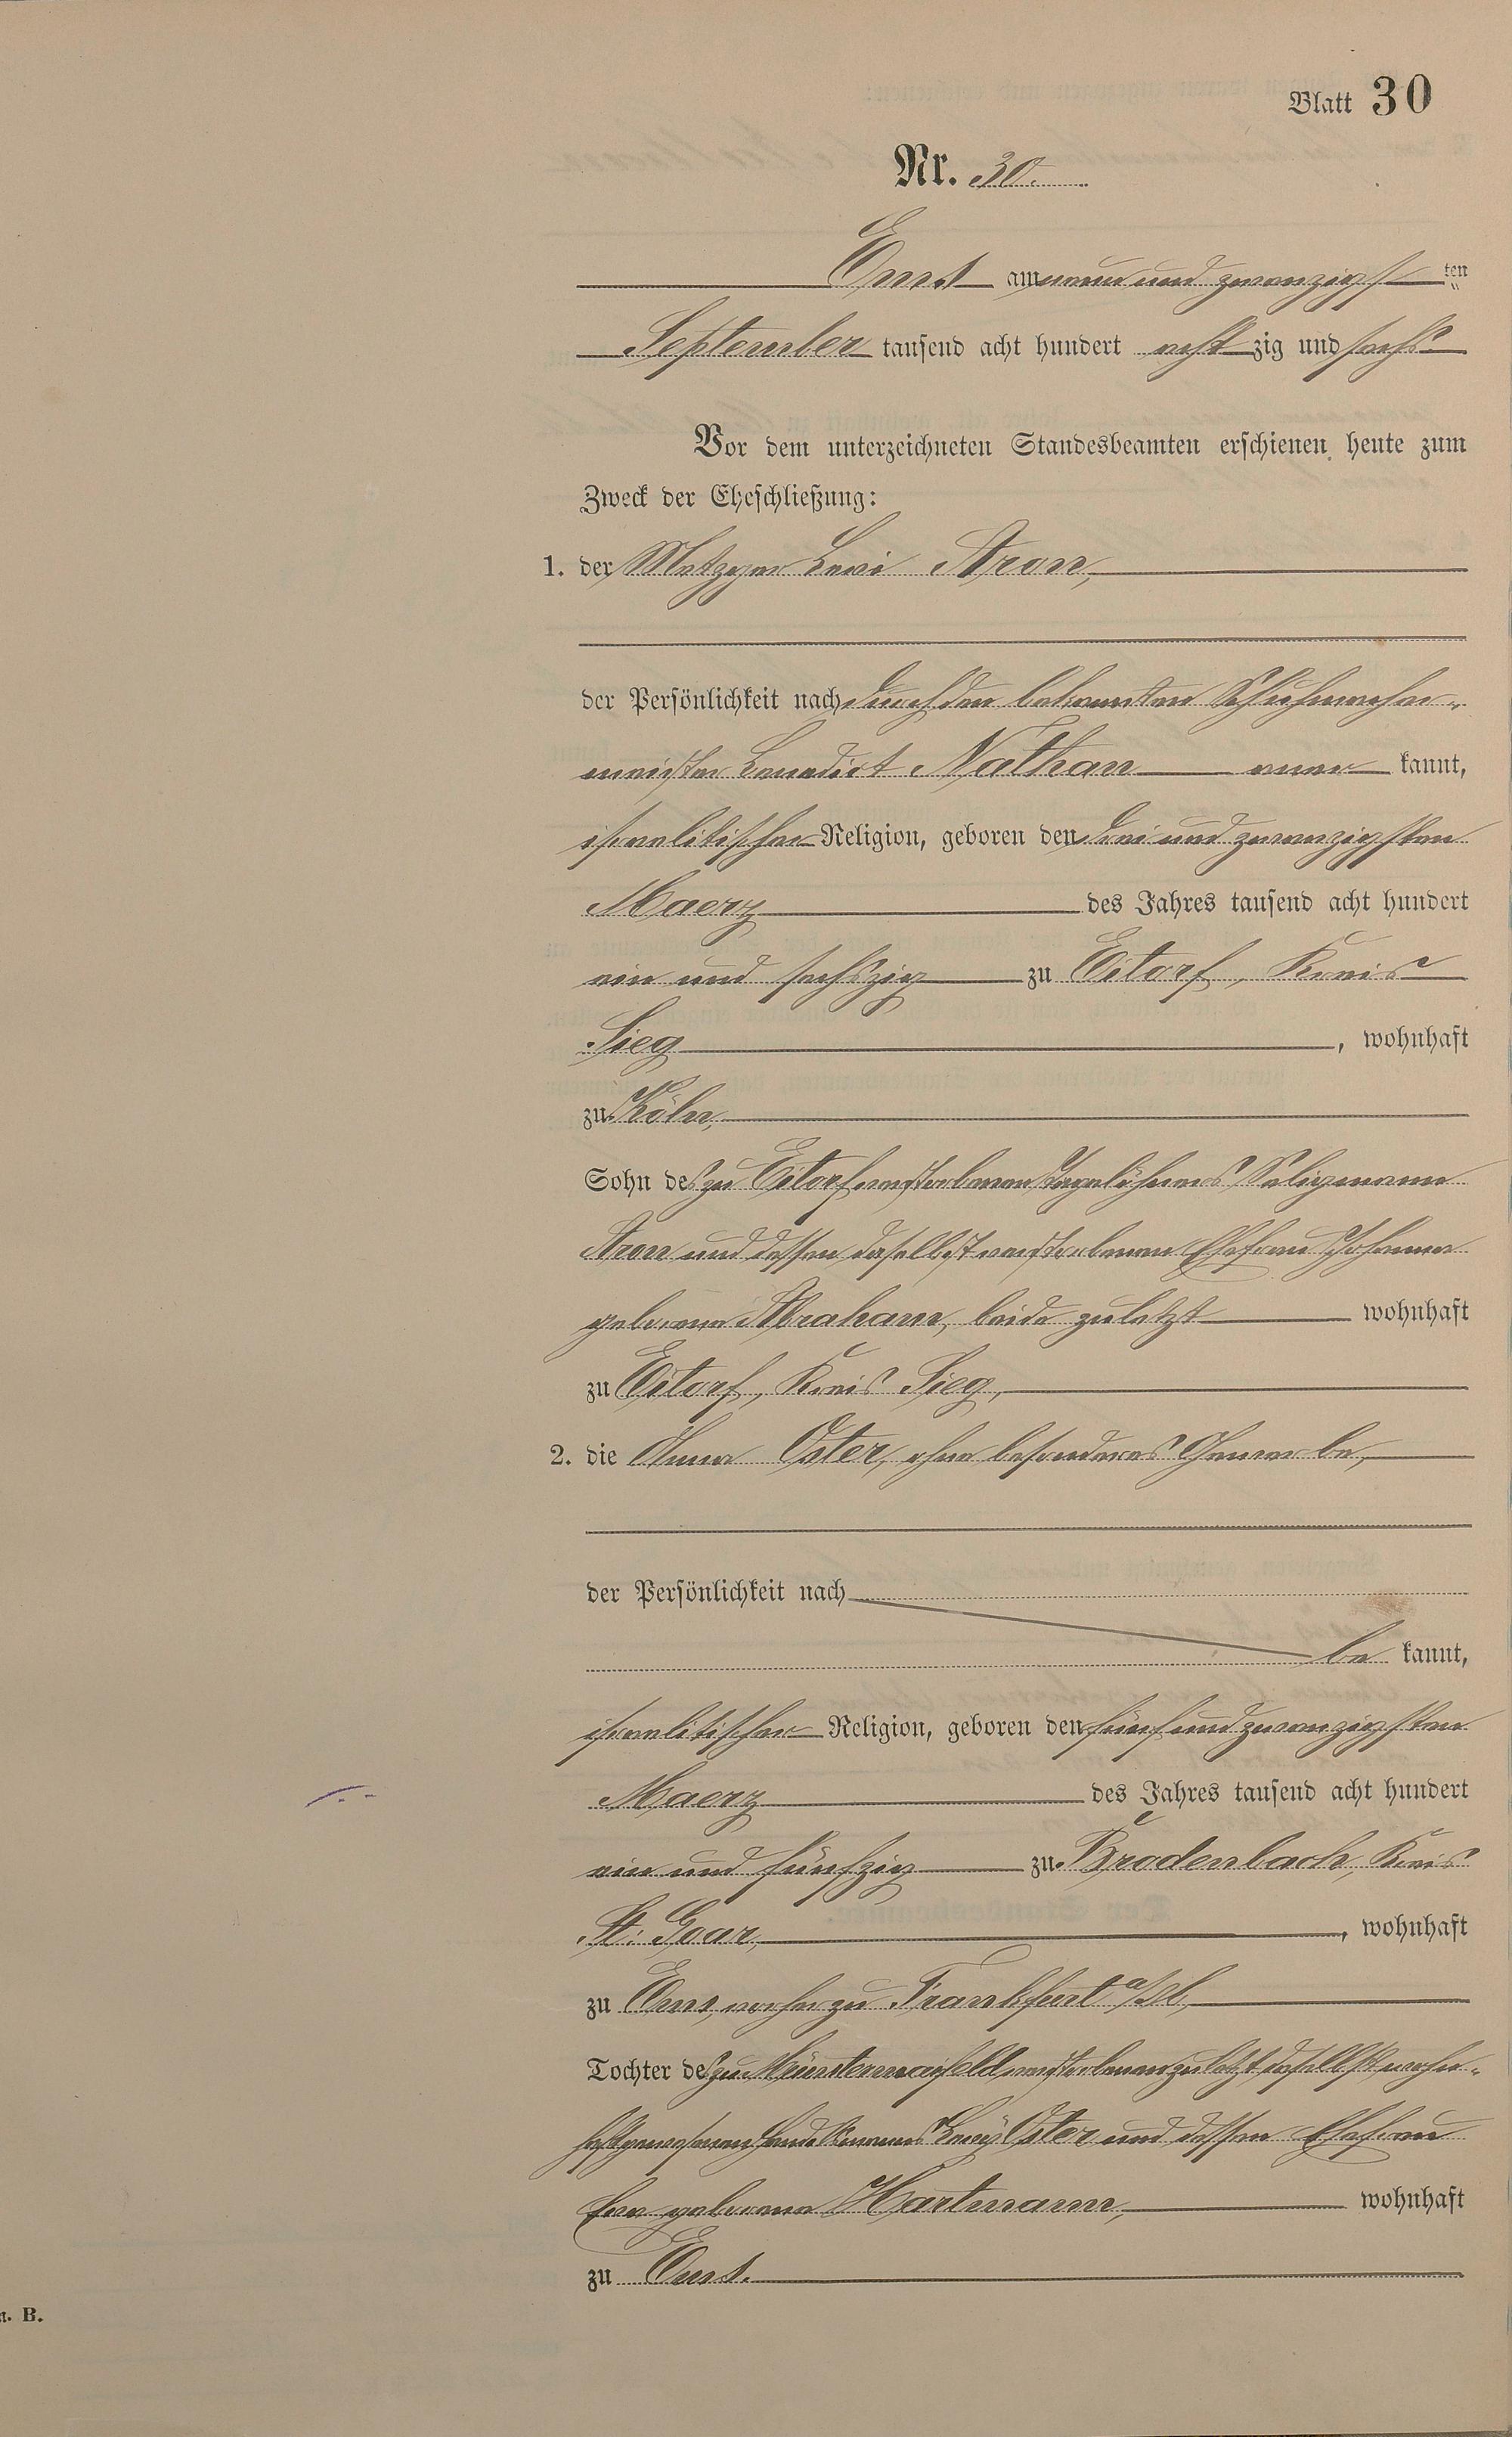 Blatt 30
Nr. 30.
Ems am neun und zwanzigst ten
September tausend acht hundert acht zig und sechs
Vor dem unterzeichneten Standesbeamten erschienen heute zum
Zweck der Eheschließung:
1. der Metzger Levi Aron,
der Persönlichkeit nach durch den bekannten Schuhmacher-
meister Benedict Nathan aner kannt,
israelitischer Religion, geboren den drei und zwanzigsten
Maerz des Jahres tausend acht hundert
ein und sechszig zu Eitorf, Kreis
Sieg, wohnhaft
zu Köln,
Sohn des zu Eitorf verstorbenen Tagelöhners Seligmann
Aron und dessen daselbst verstorbenen Ehefrau Johanna
geborene Abraham, beide zuletzt wohnhaft
zu Eitorf, Kreis Sieg,
2. die Anna Oster, ohne besonderes Gewerbe,
der Persönlichkeit nach
be kannt,
israelitischer Religion, geboren den fünf und zwanzigsten
Maerz des Jahres tausend acht hundert
ein und fünfzig zu Brodenbach, Kreis
St. Goar, wohnhaft
zu Ems, vorher zu Frankfurt a/M,
Tochter des zu Münstermaifeld verstorbenen zuletzt daselbst wohn-
haft gewesenen Handelsmannes Levy Oster und dessen Ehefrau
Eva geborene Hartmann, wohnhaft
zu Ems.
B.